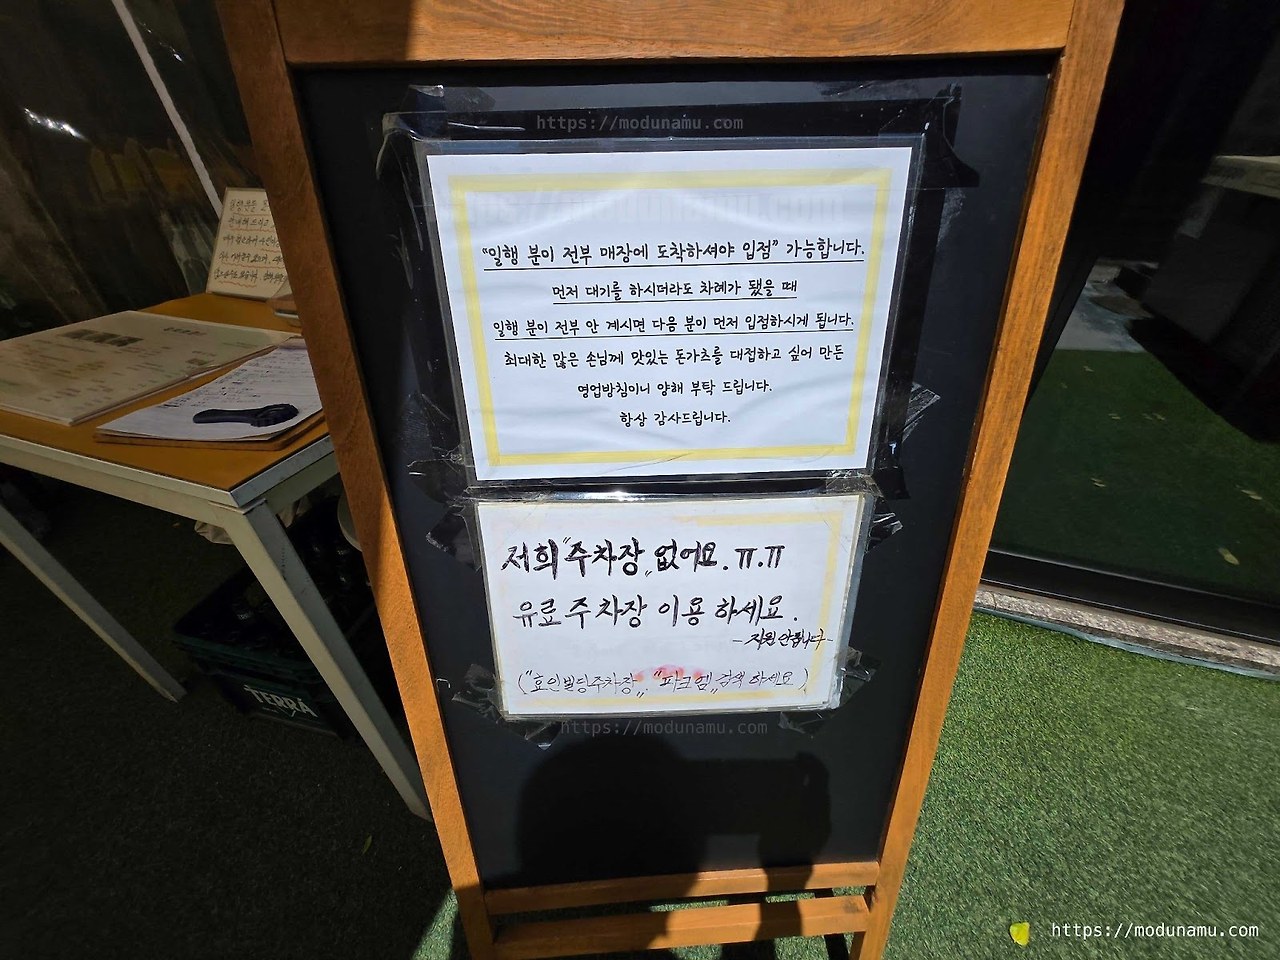 https://modunamu.com
“일행 분이 전부 매장에 도착하셔야 입점” 가능합니다.
먼저 대기를 하시더라도 차례가 됐을 때
일행 분이 전부 안 계시면 다음 분이 먼저 입점하시게 됩니다.
최대한 많은 손님께 맛있는 돈가츠를 대접하고 싶어 만든
영업방침이니 양해 부탁 드립니다.
항상 감사드립니다.
저희 "주차장" 없어요. ㅠ.ㅠ
유료주차장 이용하세요.
-지원 안됩니다-
("효인빌딩주차장", "파크엠" 검색하세요)
https://modunamu.com
TERRA
https://modunamu.com